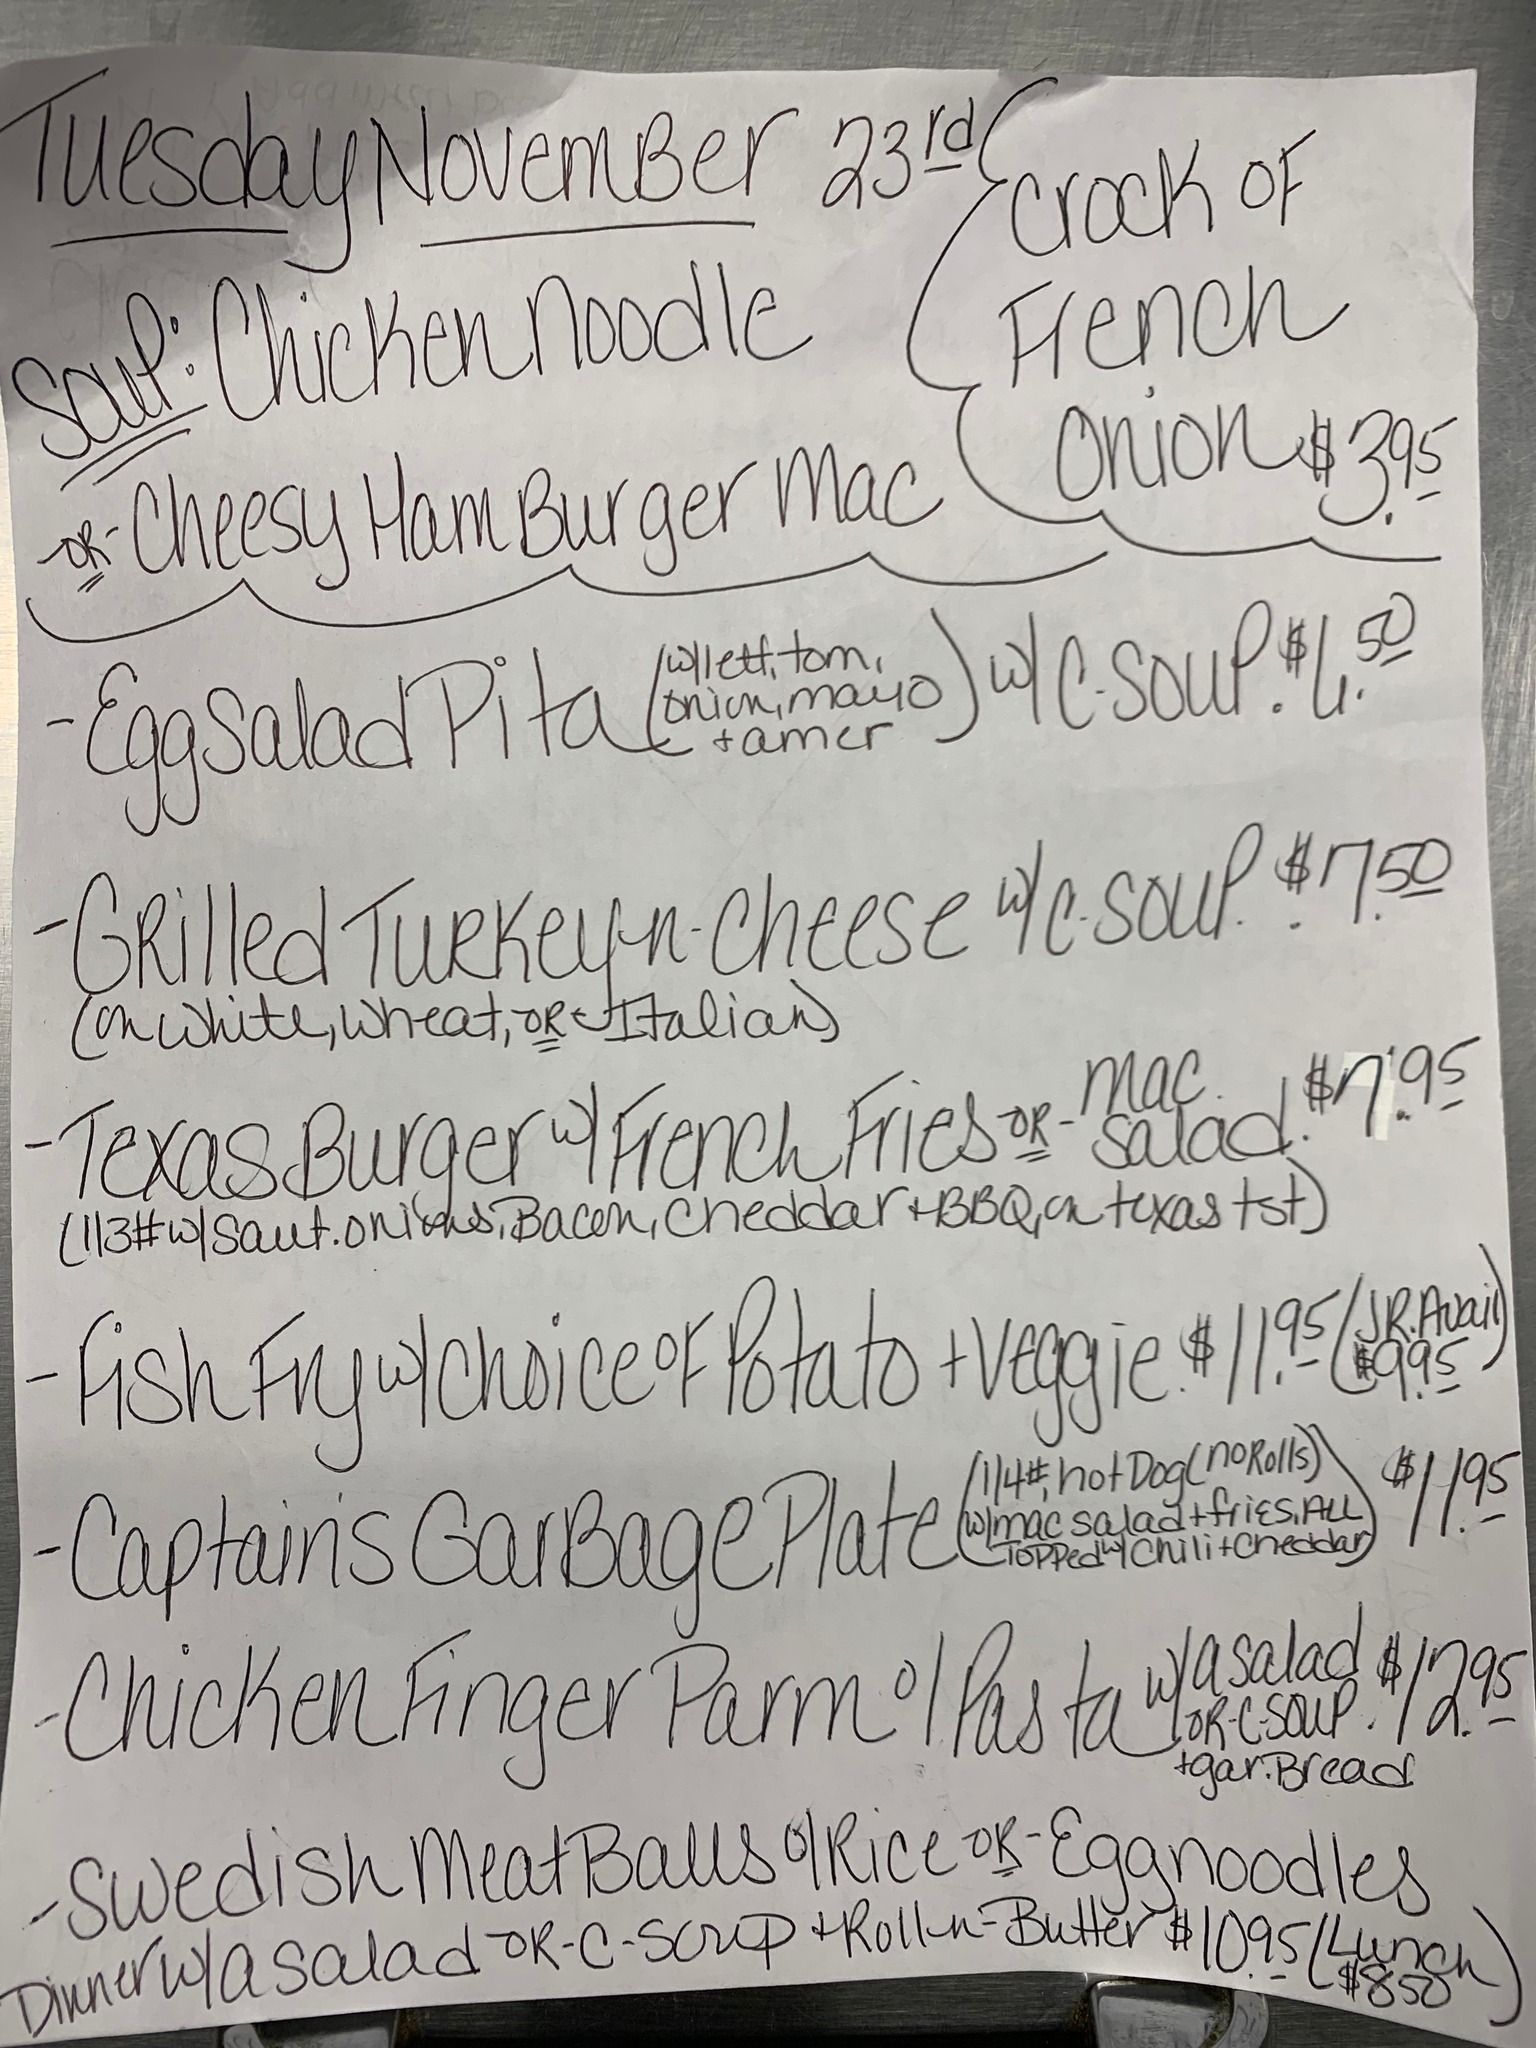 Tuesday November 23rd
Soup: Chicken Noodle
-OR- Cheesy HamBurger Mac
Crock OF
French
Onion $3.95
- Egg Salad Pita (w/lett, tom, w/ C-SOUP. $6.50
onion, mayo
+ amer)
- Grilled Turkey-n-Cheese w/ C-SOUP. $7.50
(on White, Wheat, OR - Italian)
- Texas Burger w/ French Fries OR - mac $7.95
salad.
(1/3# w/ saut. onions, Bacon, cheddar + BBQ, on texas tst)
- Fish Fry w/ choice of Potato + Veggie. $11.95 (JR. Avail
$9.95)
- Captain's GarBage Plate (1/4#, hot Dog (no Rolls) $11.95
w/ mac salad + fries, ALL
Topped w/ Chili + Cheddar)
- Chicken Finger Parm o/ Pasta w/ a salad $12.95
OR-C-SOUP.
+ gar. Bread
- Swedish MeatBalls o/ Rice OR - Eggnoodles
Dinner w/ a salad OR-C-Soup + Roll-n-Butter $10.95 (Lunch
$8.50)